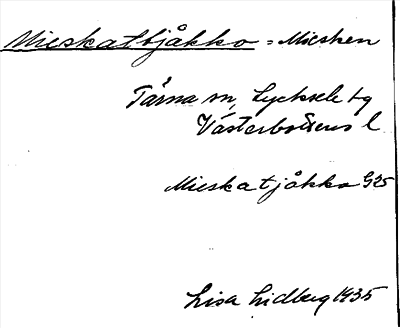 Mieskattjåkko = Miesken
Tärna sn, Lycksele tg
Västerbottens l
Mieskatjåkko G25
Lisa Lidberg 1935